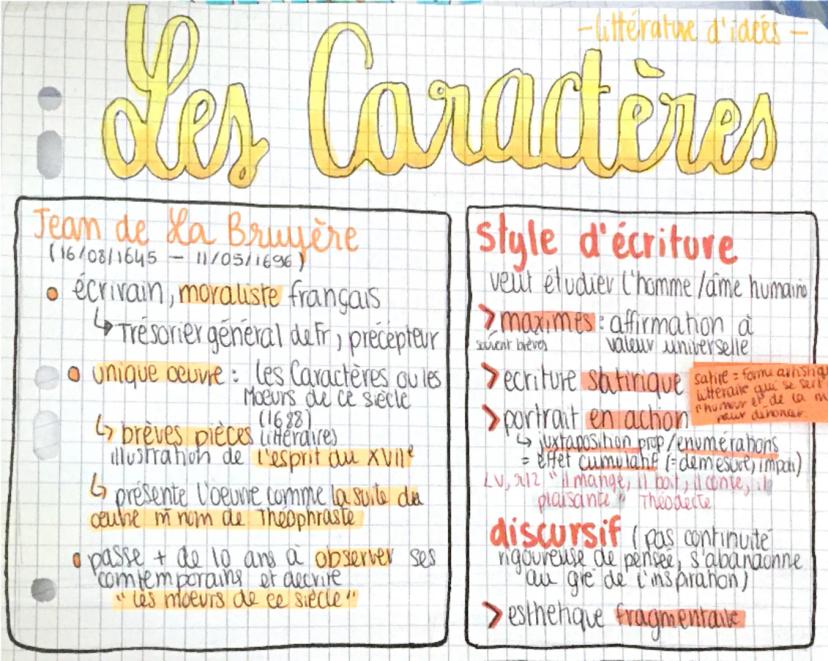 -littérature d'idées-
Les Caractères
Jean de La Bruyère
(16/08/1645 - 11/05/1696)
écrivain, moraliste français
↳ Trésorier général de Fr, précepteur
unique œuvre : Les Caractères ou les
Moeurs de ce siècle
(1688)
↳ brèves pièces littéraires
illustration de l'esprit du XVIIe
↳ présente l'oeuvre comme la suite du
œuvre m̄ nom de Théophraste
passe + de 10 ans à observer ses
comtemporains et décrire
"les moeurs de ce siècle"
style d'écriture
veut étudier l'homme/âme humaine
> maximes : affirmation à
valeur universelle
souvent brèves
> ecriture satirique
satire = forme artistique
littéraire qui se sert
l'humour et de la m
pour dénoncer
> portrait en action
↳ juxtaposition prop/enumérations
= effet cumulatif (= démesure, impoli)
LV, r12 "il mange, il boit, il conte, il
plaisante" Théodecte
discursif (pas continuité
rigoureuse de pensée, s'abandonne
au gré de l'inspiration)
> esthétique fragmentaire